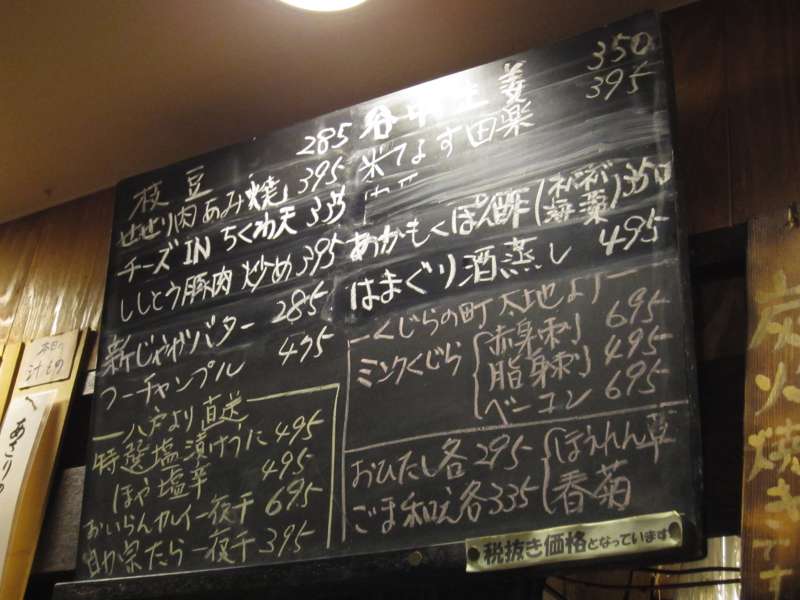 枝豆 285
せせり肉あみ焼 395
チーズINちくわ天 335
ししとう豚肉炒め 395
新じゃがバター 285
フーチャンプル 495
八戸より直送
特選塩漬けうに 495
ほや塩辛 495
おいらんカレイ一夜干 695
自家宗たら一夜干 395
谷中生姜 350
米てよす田楽 395
あかもくぽん酢(ネバネバ海藻) 350
はまぐり酒蒸し 495
くじらの町太地より
ミンククジラ
赤身刺 695
脂身刺 495
ベーコン 695
おひたし各295 ほうれん草
ごま和え各335 春菊
税抜き価格となっています
本日の
汁もの
あさりの
炭火焼きです